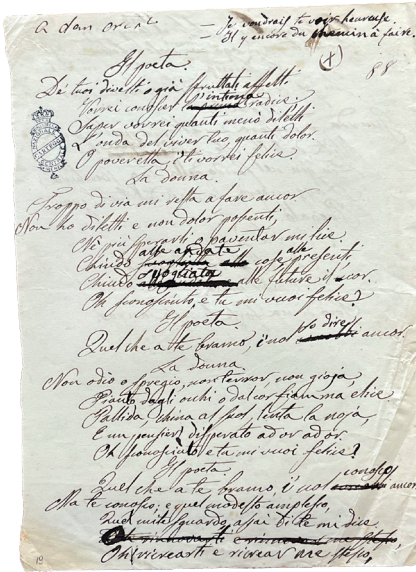 — Je voudrais te voir heureuse.
— Il y encore du chemin à faire.
(+)
88
Il poeta.
De' tuoi diletti o già sfruttati affetti
Vorrei conoscer l'intima radice.
Saper vorrei quanti meno diletti
L'onda del viver tuo, quanti dolor.
O poveretta, i' ti vorrei felice.
La donna.
Troppo di via mi resta a fare ancor
Non ho diletti e non dolor possenti,
Nè più sperarti o paventar mi lice
Chiudo alle andate alle cose presenti
Chiudo svogliata alle future il cor.
Oh sconosciuto, e tu mi vuoi felice?
Il poeta.
Quel che a te bramo, i' nol so dire ancor.
La donna
Non odio o spregio, non terror, non gioja,
Pianto dagli occhi o dal cor fiamma elice
Pallida, china al suol, tinta la noja
E un pensier disperato ad or ad or.
Oh sconosciuto e tu mi vuoi felice?
Il poeta.
Quel che a te bramo, i' nol conosco ancor.
Ma te conosco, e quel modesto amplesso,
Quel mite sguardo assai di te mi dice
Oh! ricrearti e ricrear me stesso,
10